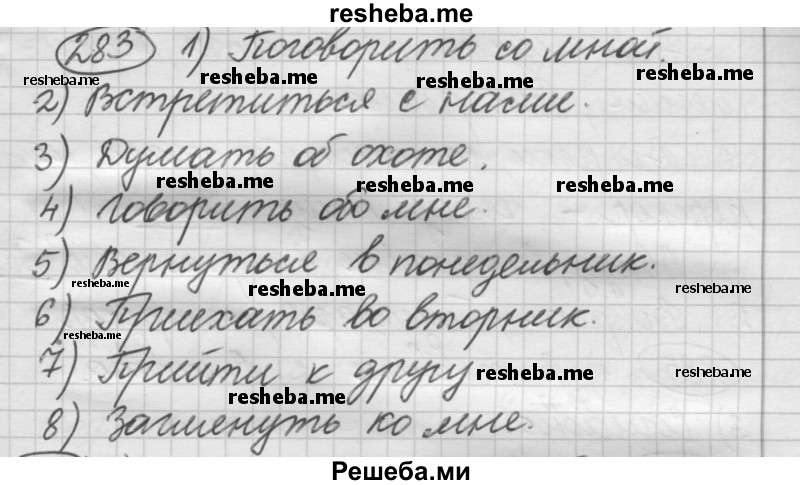 resheba.me
283 1) Поговорить со мной.
resheba.me resheba.me resheba.me resheba.me
2) Встретиться с нами.
3) Думать об охоте.
resheba.me resheba.me resheba.me
4) Говорить обо мне.
5) Вернуться в понедельник.
resheba.me resheba.me resheba.me
6) Приехать во вторник.
resheba.me
7) Прийти к другу resheba.me resheba.me
resheba.me
8) Заглянуть ко мне.
Решеба.ми